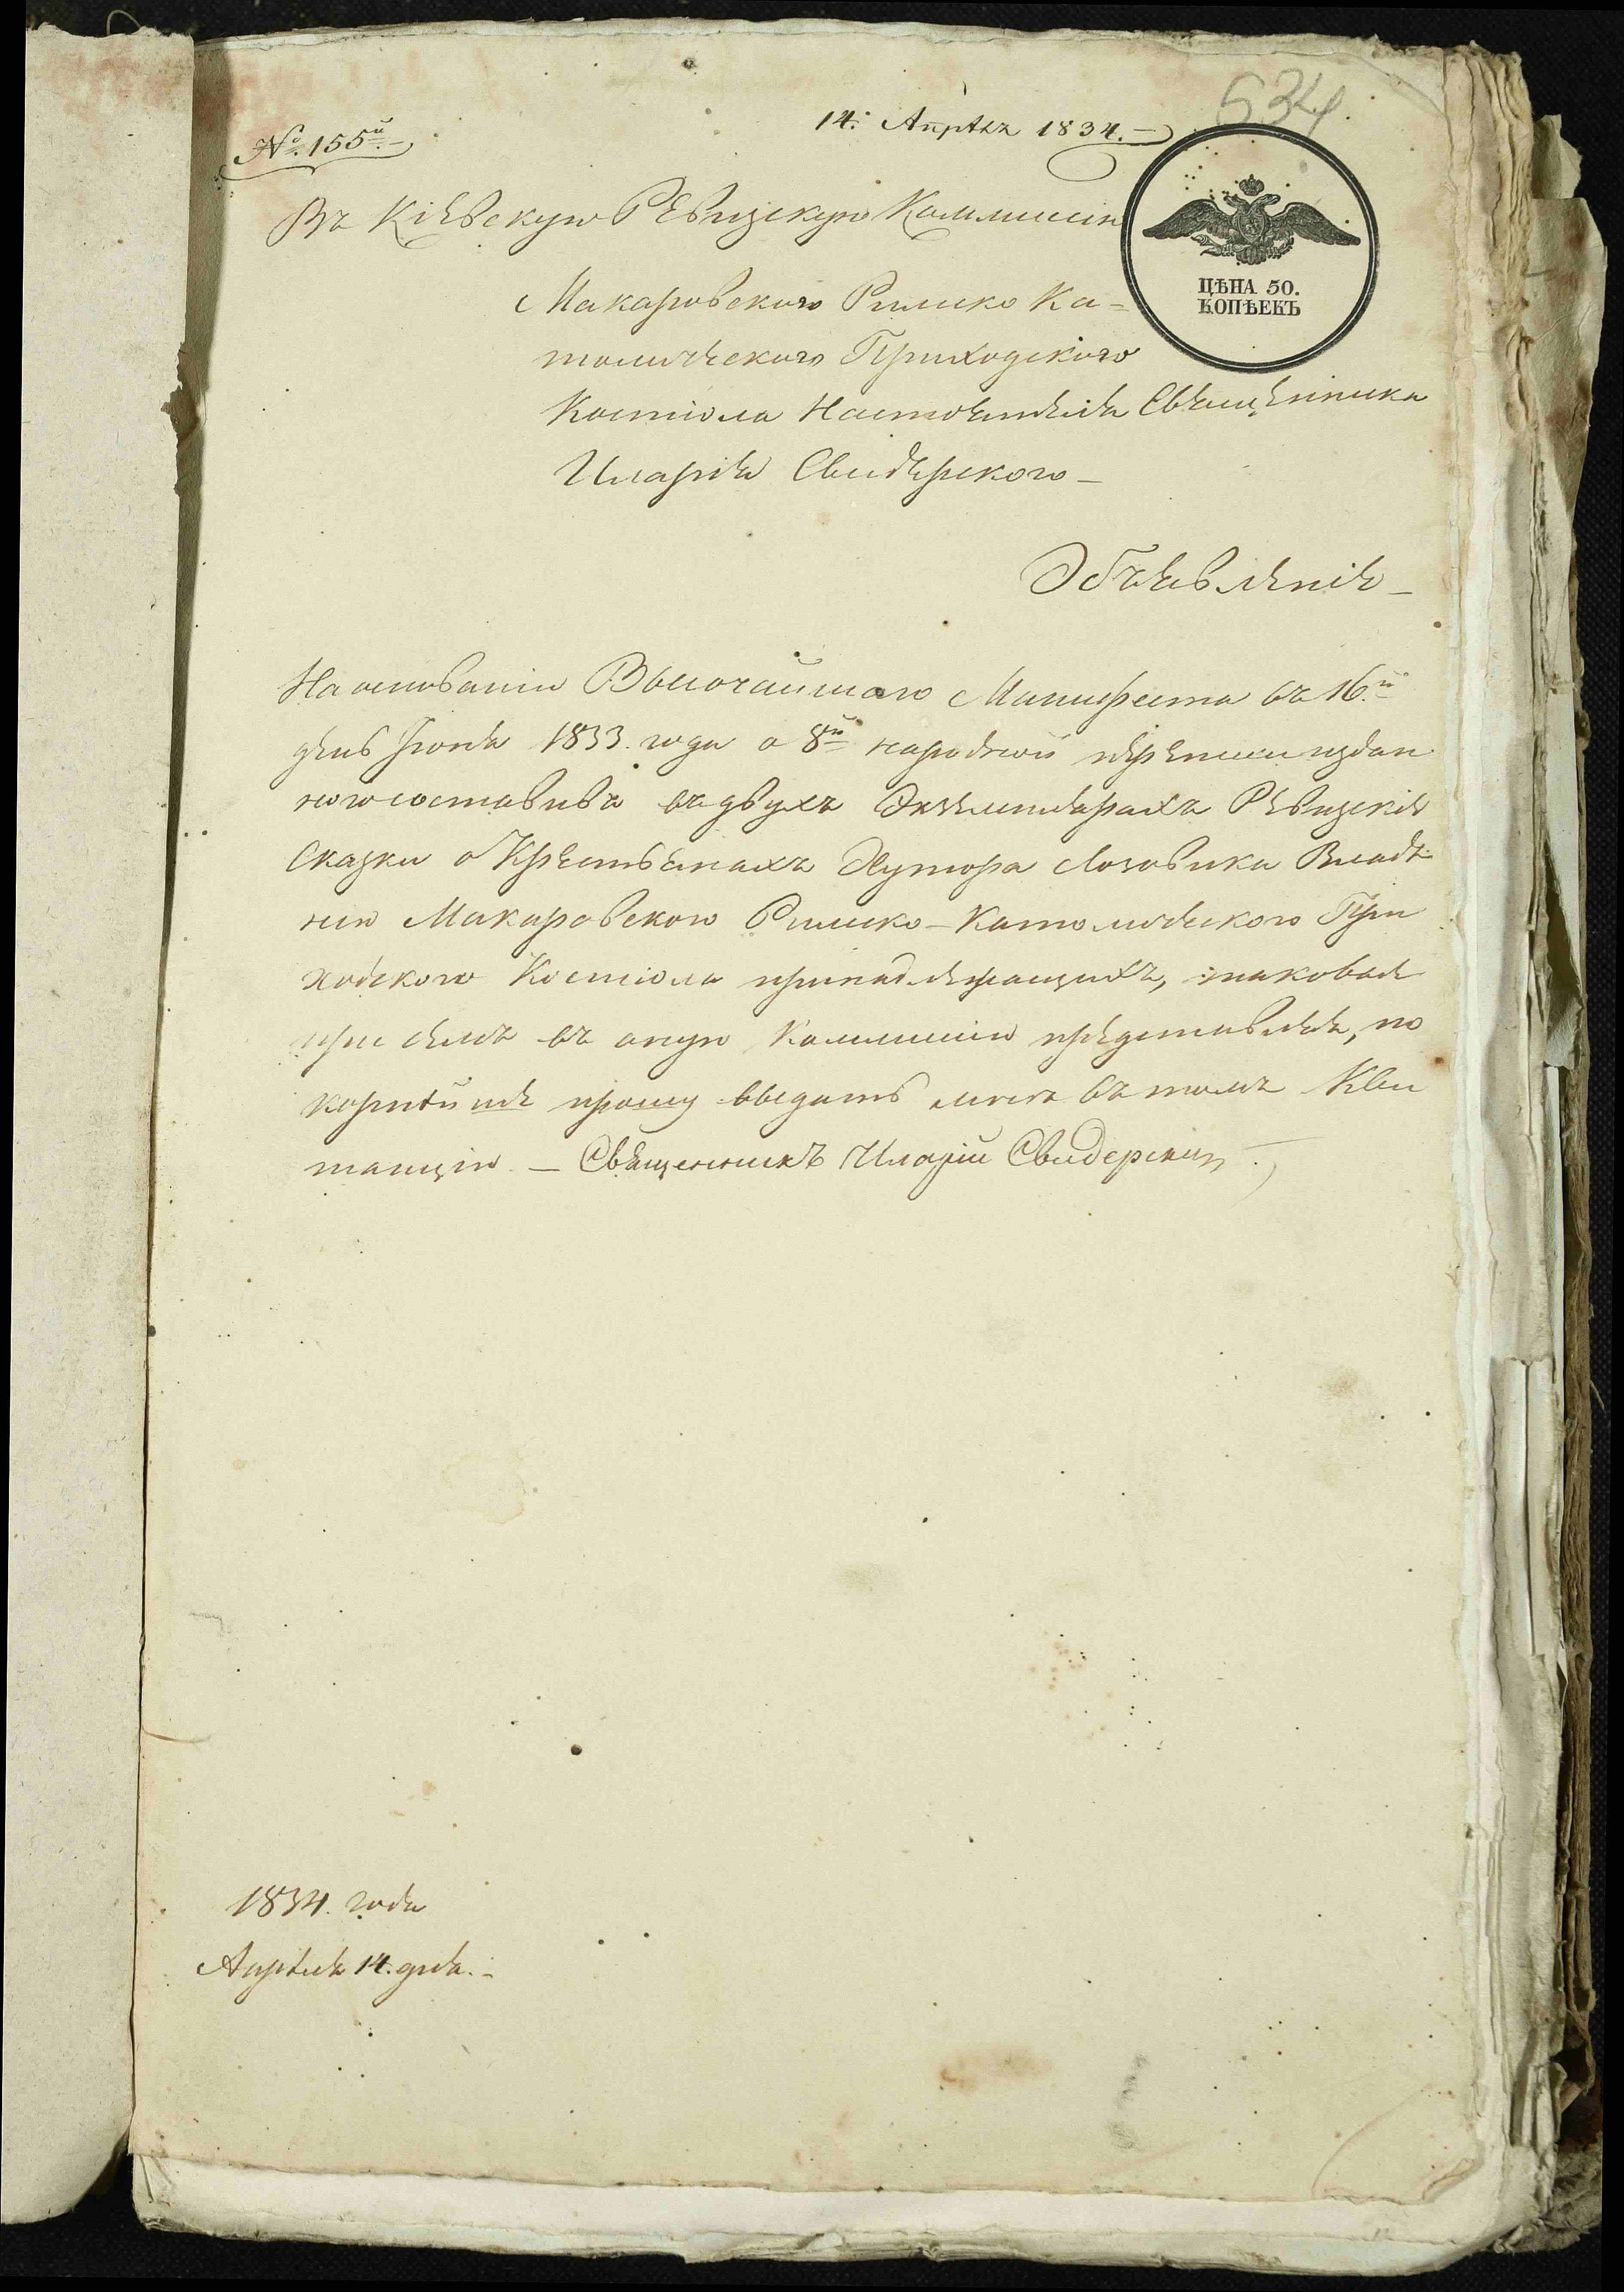 634
№ 155й
14: Апрѣля 1834.
ЦѢНА 50.
КОПѢЕКЪ
Въ Кіевскую Ревизскую Коммисію
Макаровского Римско Ка=
толическаго Приходскаго
Костіола Настоятеля Священника
Иларія Свидерского
Объявленіе
На основаніи Высочайшаго Манифеста въ 16.й
день Іюня 1833. года о 8й народной переписи издан
ного составивъ въ двухъ Экземплярахъ Ревизскія
Сказки о Крестьянахъ Хутора Лозовика Владѣ
нію Макаровского Римско-Католического При
ходского Костіола принадлежащихъ, таковая
при семъ въ оную Коммисію представляя, по
корнѣйше прошу выдать мнѣ въ томъ Кви
танцію. — Священникъ Иларій Свидерскій
1834. года
Апрѣля 14. дня.